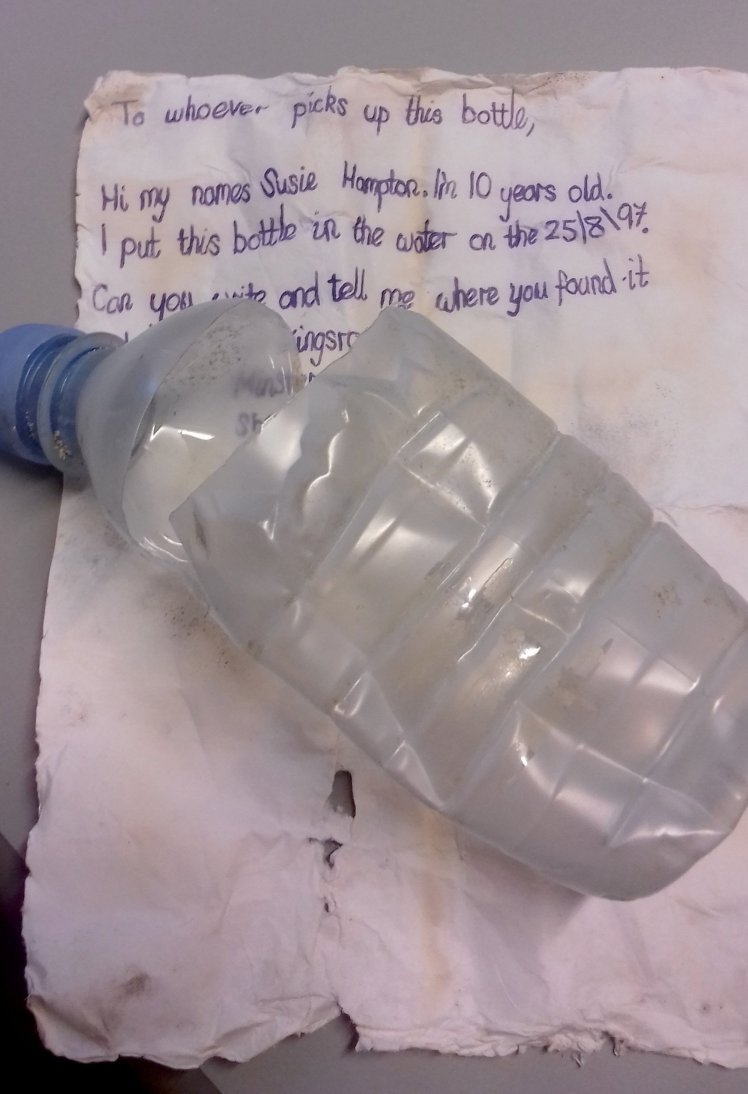 To whoever picks up this bottle,
Hi my names Susie Hampton. I'm 10 years old.
I put this bottle in the water on the 25/8\97.
Can you write and tell me where you found it
ingsro
Minst
Sh